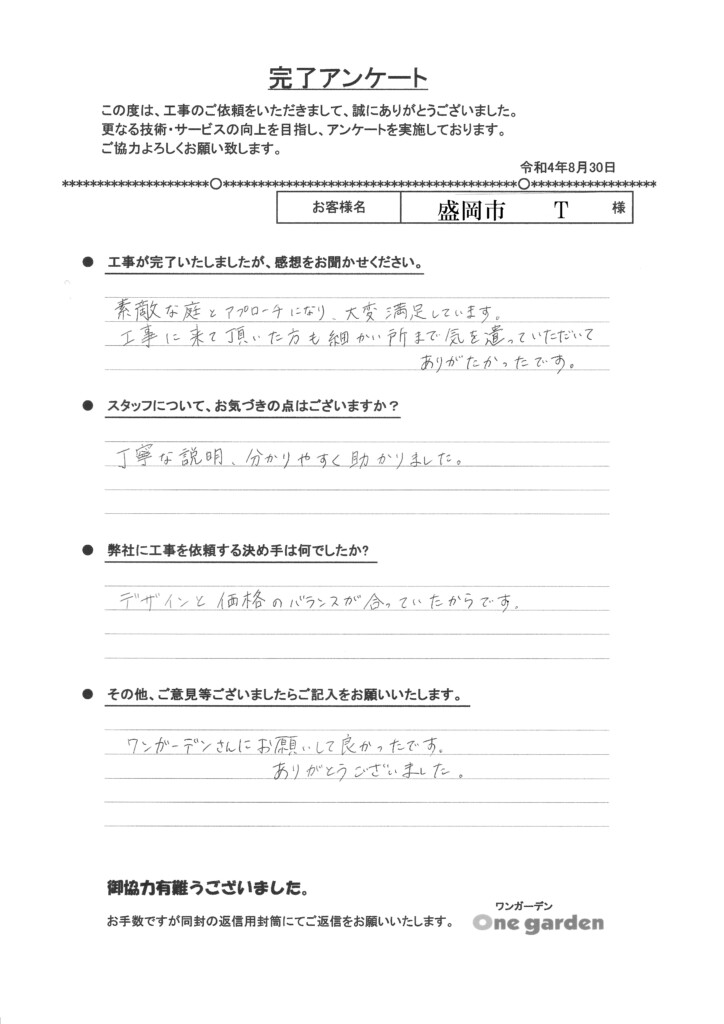 完了アンケート
この度は、工事のご依頼をいただきまして、誠にありがとうございました。
更なる技術・サービスの向上を目指し、アンケートを実施しております。
ご協力よろしくお願い致します。
令和4年8月30日
お客様名 盛岡市 T 様
● 工事が完了いたしましたが、感想をお聞かせください。
素敵な庭とアプローチになり、大変満足しています。
工事に来て頂いた方も細かい所まで気を遣っていただいて
ありがたかったです。
● スタッフについて、お気づきの点はございますか？
丁寧な説明、分かりやすく助かりました。
● 弊社に工事を依頼する決め手は何でしたか?
デザインと価格のバランスが合っていたからです。
● その他、ご意見等ございましたらご記入をお願いいたします。
ワンガーデンさんにお願いして良かったです。
ありがとうございました。
御協力有難うございました。
お手数ですが同封の返信用封筒にてご返信をお願いいたします。
ワンガーデン
One garden